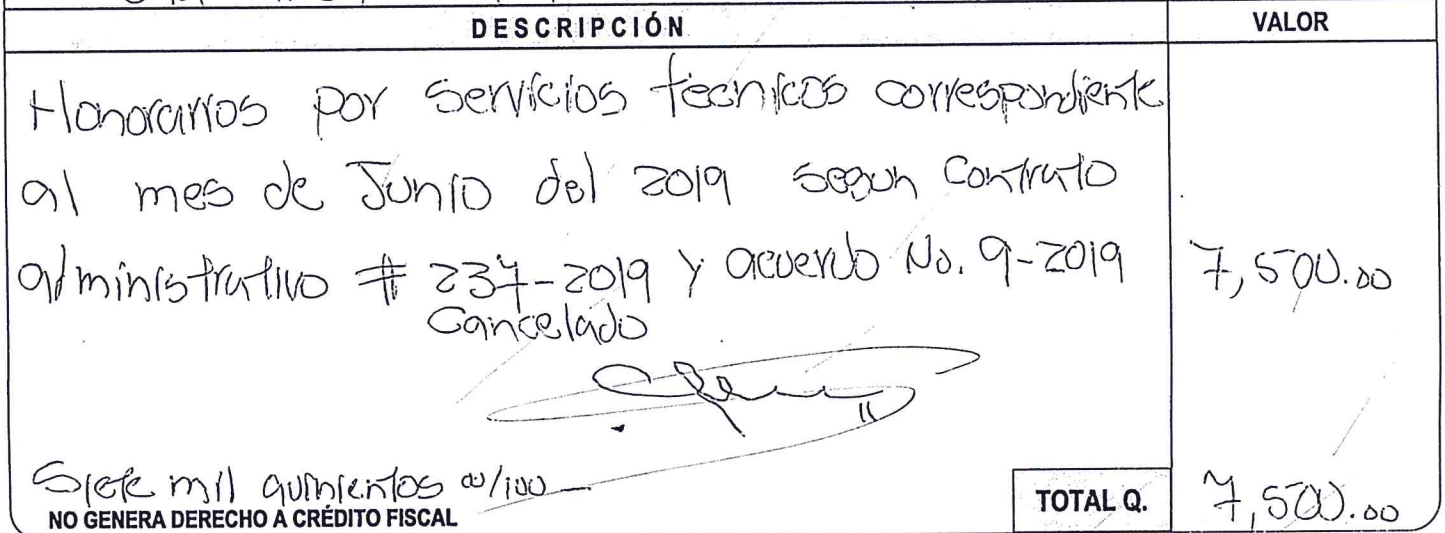 DESCRIPCIÓN VALOR
Honorarios por Servicios tecnicos correspondiente
al mes de Junio del 2019 segun Contrato
administrativo # 237-2019 y acuerdo No. 9-2019 7,500.00
Cancelado
Siete mil quinientos 00/100
NO GENERA DERECHO A CRÉDITO FISCAL
TOTAL Q. 7,500.00